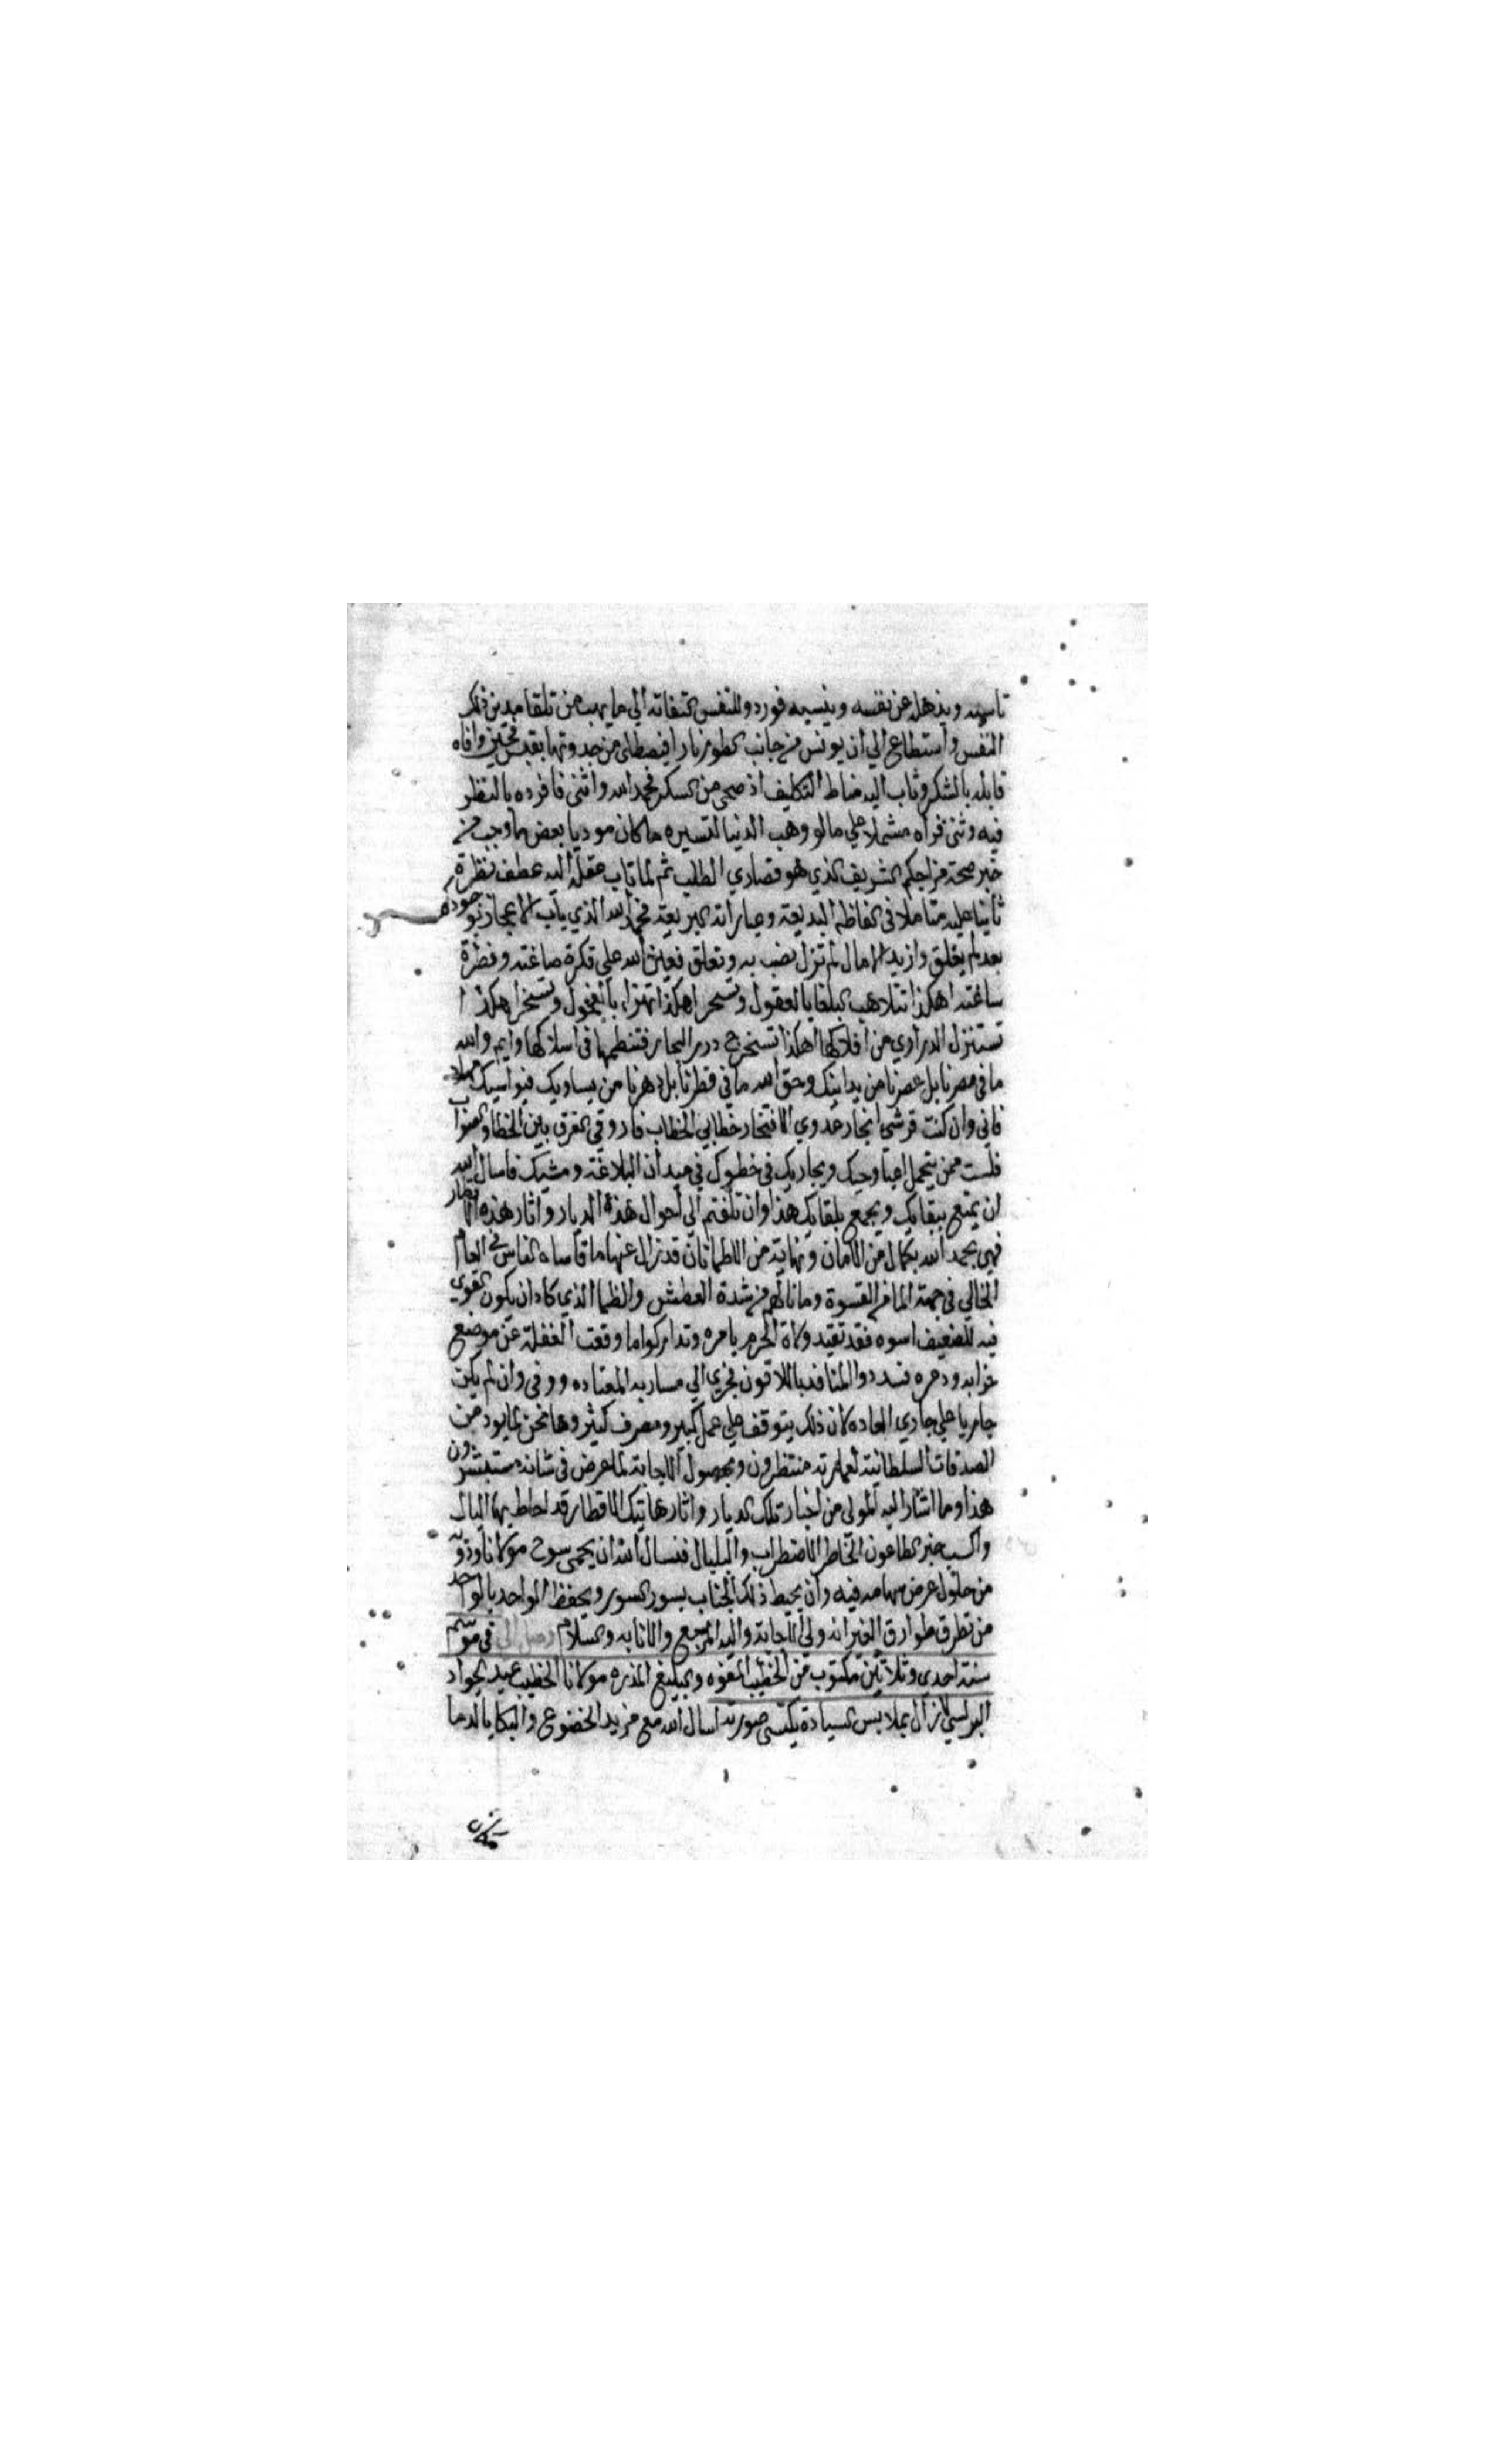 ويذهله عن نفسه وينسيه فورد وللنفس التفاته الي ما يهب من تلقا مدين ذلك
النفس واستطاع الي ان يونس من جانب الطور نارا فيصطلي من جدوتها بقبس فحين وافاه
قابله بالشكر وثاب اليه التكليف اذ صحي من السكر فحمد الله واثني فافرده بالنظر
فيه وثني فراه مشملا علي ما لو وهب الدنيا لتسيره ما كان موديا بعض ما وجب من
خبر صحة مزاجكم الشريف الذي هو قصاري الطلب ثم لما تاب عقله اليه عطف نظرة
ثانيا عليه متاملا في الفاظه البديعة وعباراته فحمد الله الذي باب الاعجاز بوجوده
بعد لم يغلق وازيد الامال لم تزل به وتعلق فعين الله علي فكرة صاغته وفطرة
ساغته اهكذا تتلاعب البلغا بالعقول وتسحر اهكذا تهزا بالفحول وتسخر اهكذا
تستنزل الدراري من افلاكها اهكذا تستخرج درر البحار فتنظمها في اسلاكها وايم والله
ما في مصرنا بل عصرنا من يدانيك وحق الله ما في قطرنا بل دهرنا من يساويك فيواسيك مهلا
فاني وان كنت قرشي عدوي الافتخار خطابي الخطاب فاروقي الفرق بين الخطا والصواب
فلست ممن يتحمل اعبا وحيك ويجاريك في خطوك في ميدان البلاغة ومشيك فاسال الله
ان يمتع ببقايك ويجمع بلقايك هذا وان تلفتم الي احوال هذه الديار واثار هذه الاقطار
فهي بحمد الله بكمال من الامان ونهاية من الاطمانان قد زال عنها ما قاساه الناس في العام
الخالي في جهة الما من القسوة وما نالهم من شدة العطش والظما الذي كاد ان يكون القوي
فيه للضعيف اسوه فقد تقيد ولاة الحرم بامره وتداركوا ما وقعت الغفلة عن موضع
خرابه ودمره فسددوا المنافذ باللاقون فجري الي مساربه المعتاده ووفي وان لم يكن
جاريا علي جاري العاده لان ذلك يتوقف علي عمل كبير ومصرف كثير وها نحن لما يود من
الصدقات السلطانية لعمارته منتظرون وبحصول الاجابة لما عرض في شانه مستبشرون
هذا وما اشار اليه المولي من اخبار تلك الديار واثار هاتيك الاقطار قد احاط بها البال
واكسب خبر الطاعون الخاطر الاضطراب والبلبال فنسال الله ان يحمي سوح مولانا وذويه
من حلول عرض سهامه فيه وان يحيط ذلك الجناب بسور السور ويحفظ الواحد بالواحد
من تطرق طوارق الغير انه ولي الاجابة واليه المرجع والانابه والسلام وصل الي في موسم
سنة احدي وثلاثين مكتوب من الخطيب المفوه والبليغ المذره مولانا الخطيب عبد الجواد
البرلسي لا زال بملابس السيادة يكتسي صورته اسال الله مع مزيد الخضوع والبكا بالدما